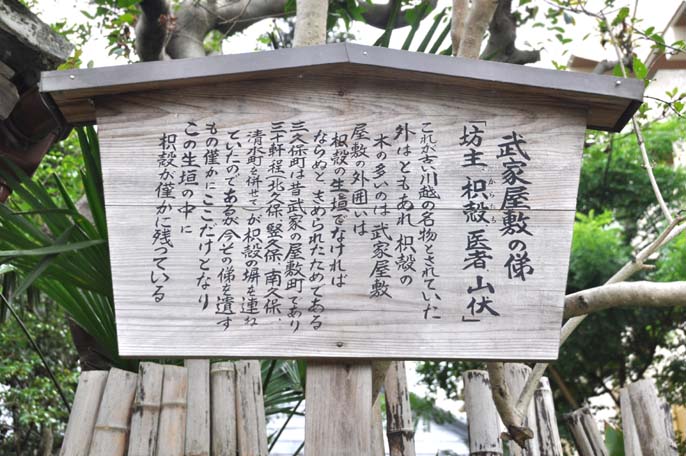 武家屋敷の俤
「坊主 枳殻 医者 山伏」
からたち
これは古い川越の名物とされていた
外はともあれ 枳殻の
木の多いのは 武家屋敷
屋敷の外囲いは
枳殻の生垣でなければ
ならぬと きめられたためである
三久保町は昔武家の屋敷町であり
三十軒程、北久保、堅久保、南久保、
清水町を併せてが枳殻の塀を連ね
ていたのであるが 今その俤を遺す
もの僅かにここだけとなり
この生垣の中に
枳殻が僅かに残っている